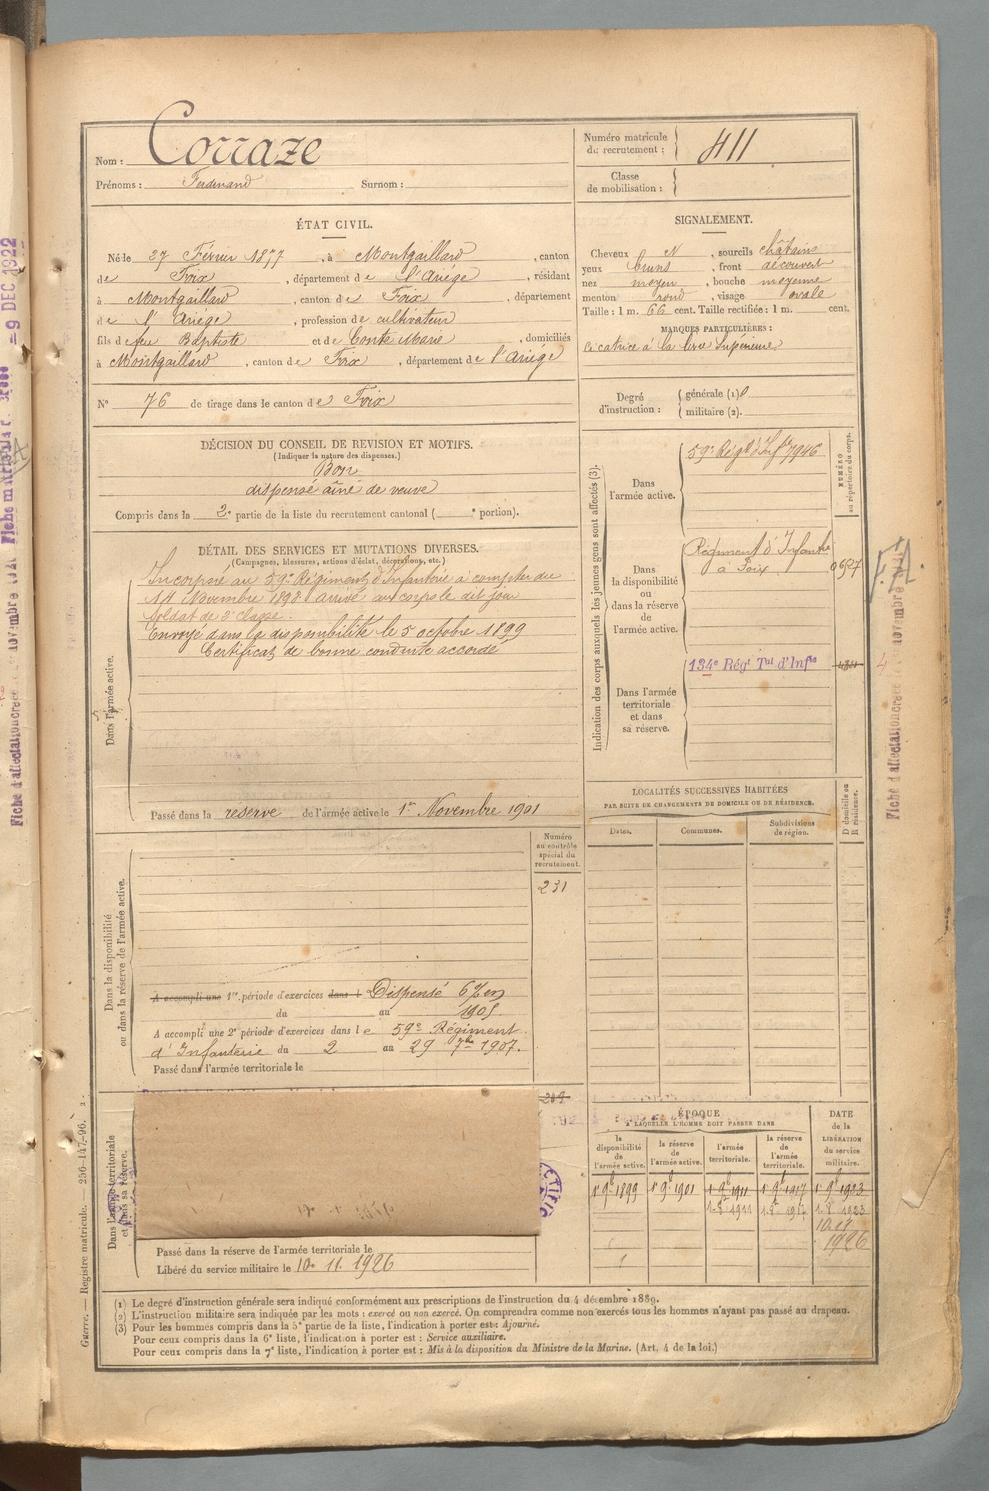 Nom : Corraze
Prénoms : Ferdinand Surnom :
Numéro matricule du recrutement : 411
Classe de mobilisation :
ÉTAT CIVIL.
Né le 27 Février 1877, à Montgaillard, canton
de Foix, département de l'Ariége, résidant
à Montgaillard, canton de Foix, département
de l'Ariége, profession de cultivateur
fils de feu Baptiste et de Conte Marie, domiciliés
à Montgaillard, canton de Foix, département de l'Ariége
N° 76 de tirage dans le canton de Foix
SIGNALEMENT.
Cheveux N, sourcils châtains
yeux bruns, front découvert
nez moyen, bouche moyenne
menton rond, visage ovale
Taille : 1 m. 66 cent. Taille rectifiée : 1 m. cent.
MARQUES PARTICULIÈRES :
Cicatrice à la lèvre Supérieure
Degré d'instruction : générale (1) 0
militaire (2).
DÉCISION DU CONSEIL DE REVISION ET MOTIFS.
(Indiquer la nature des dispenses.)
Bon
dispensé aîné de veuve
Compris dans la 2e partie de la liste du recrutement cantonal ( e portion).
DÉTAIL DES SERVICES ET MUTATIONS DIVERSES.
(Campagnes, blessures, actions d'éclat, décorations, etc.)
Dans l'armée active.
Incorporé au 59e Régiment d'Infanterie à compter du
14 Novembre 1898 arrivé au corps le dit jour
Soldat de 2e classe.
Envoyé dans la disponibilité le 5 octobre 1899
Certificat de bonne conduite accordé
Passé dans la réserve de l'armée active le 1er Novembre 1901
Indication des corps auxquels les jeunes gens sont affectés (3).
NUMÉRO au répertoire du corps.
Dans l'armée active.
59e Régt d'Infie 7946
Dans la disponibilité ou dans la réserve de l'armée active.
Régiment d'Infanterie
à Foix
Dans l'armée territoriale et dans sa réserve.
134e Régt Tal d'Infie
LOCALITÉS SUCCESSIVES HABITÉES
PAR SUITE DE CHANGEMENTS DE DOMICILE OU DE RÉSIDENCE.
Dates. Communes. Subdivisions de région. D domicile ou R résidence.
Dans la disponibilité ou dans la réserve de l'armée active.
Numéro au contrôle spécial du recrutement.
231
A accompli une 1re période d'exercices dans l Dispensé 6% en
du au 1905
A accompli une 2e période d'exercices dans le 59e Régiment
d'Infanterie du 2 au 29 7bre 1907.
Passé dans l'armée territoriale le
Dans l'armée territoriale et dans sa réserve.
Passé dans la réserve de l'armée territoriale le
Libéré du service militaire le 10. 11. 1926
ÉPOQUE
À LAQUELLE L'HOMME DOIT PASSER DANS
la disponibilité de l'armée active.
la réserve de l'armée active.
l'armée territoriale.
la réserve de l'armée territoriale.
DATE de la LIBÉRATION du service militaire.
1er 9b 1899 1er 9b 1901 1er 9b 1911 1er 9b 1917 1er 9b 1923
1.8b 1911 1.8b 1917 1.8b 1923
1926
(1) Le degré d'instruction générale sera indiqué conformément aux prescriptions de l'instruction du 4 décembre 1889.
(2) L'instruction militaire sera indiquée par les mots : exercé ou non exercé. On comprendra comme non exercés tous les hommes n'ayant pas passé au drapeau.
(3) Pour les hommes compris dans la 5e partie de la liste, l'indication à porter est : Ajourné.
Pour ceux compris dans la 6e liste, l'indication à porter est : Service auxiliaire.
Pour ceux compris dans la 7e liste, l'indication à porter est : Mis à la disposition du Ministre de la Marine. (Art. 4 de la loi.)
Guerre. — Registre matricule. — 256-147-96. 2.
- 9 DEC 1922
F.A.